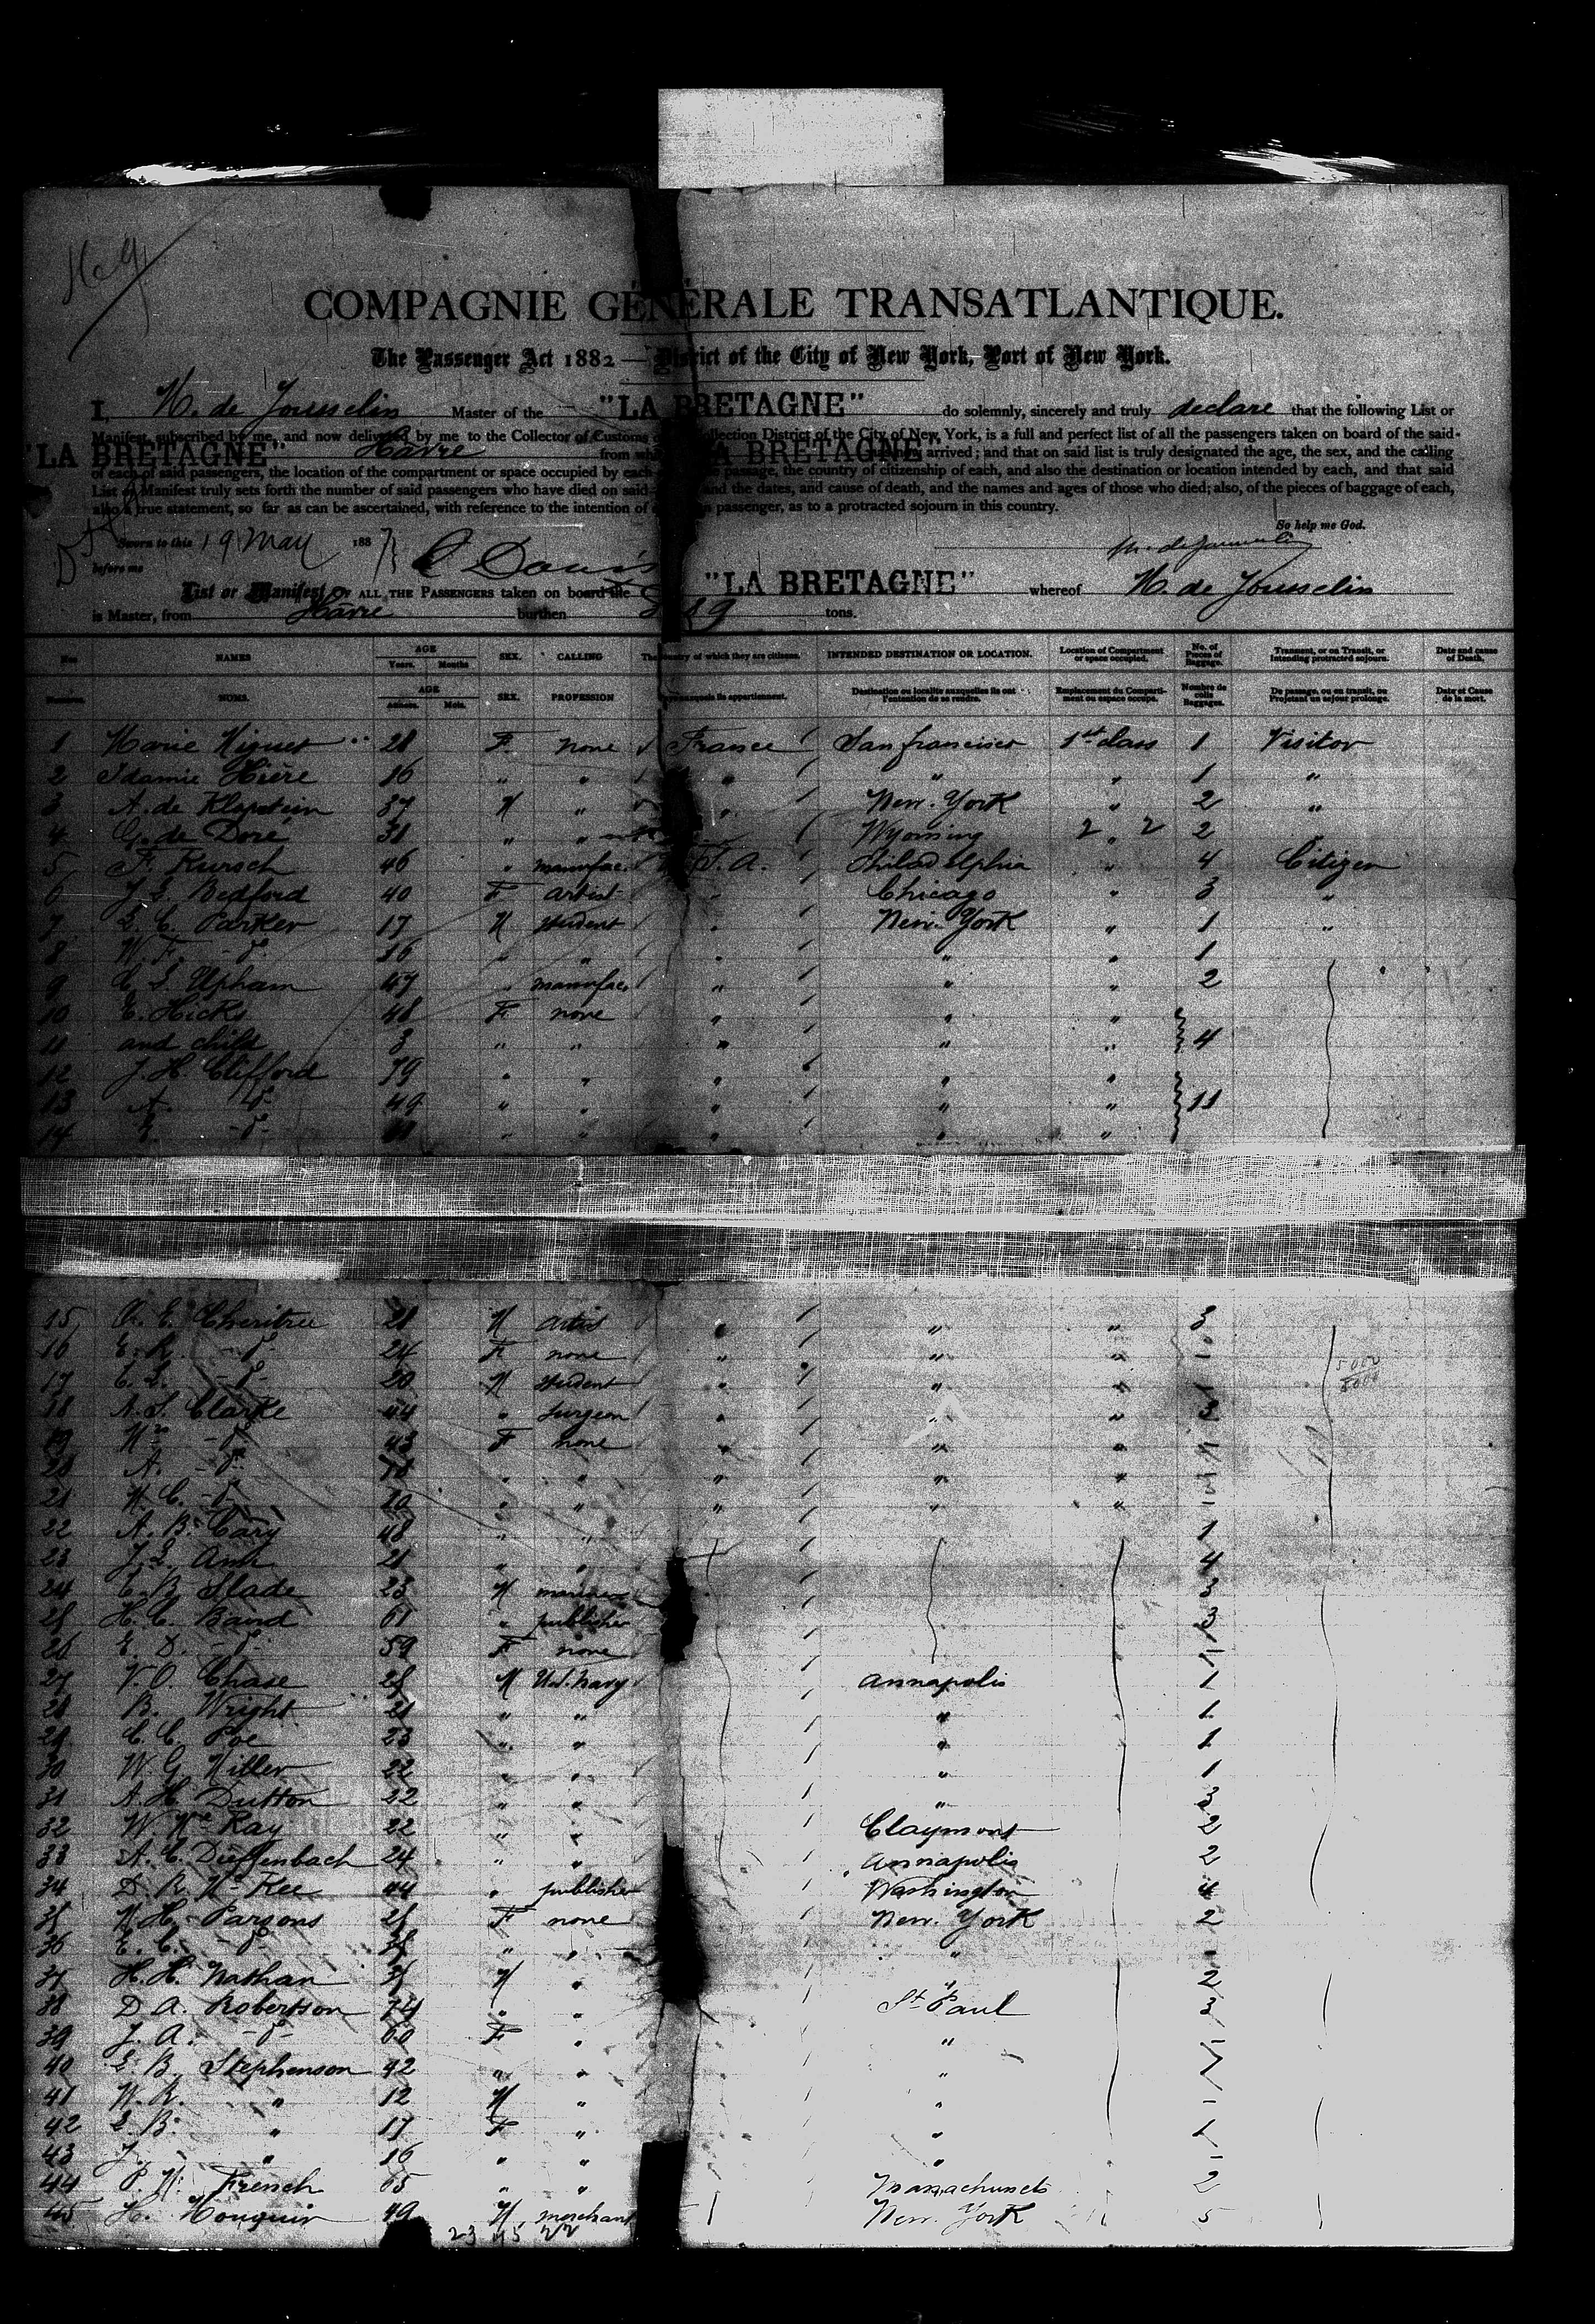 COMPAGNIE GÉNÉRALE TRANSATLANTIQUE.
The Passenger Act 1882 — District of the City of New York, Port of New York.
I, M. de Jousselin Master of the "LA BRETAGNE" do solemnly, sincerely and truly declare that the following List or
Manifest, subscribed by me, and now delivered by me to the Collector of Customs Collection District of the City of New York, is a full and perfect list of all the passengers taken on board of the said
"LA BRETAGNE" Havre from "LA BRETAGNE" arrived; and that on said list is truly designated the age, the sex, and the calling
of each of said passengers, the location of the compartment or space occupied by each passage, the country of citizenship of each, and also the destination or location intended by each, and that said
List or Manifest truly sets forth the number of said passengers who have died on said and the dates, and cause of death, and the names and ages of those who died; also, of the pieces of baggage of each,
also a true statement, so far as can be ascertained, with reference to the intention of passenger, as to a protracted sojourn in this country.
So help me God.
Sworn to this 19 May 1887
before me
List or Manifest OF ALL THE PASSENGERS taken on board the "LA BRETAGNE" whereof M. de Jousselin
is Master, from Havre burthen tons.
NAMES AGE Years. Months SEX. CALLING The country of which they are citizens. INTENDED DESTINATION OR LOCATION. Location of Compartment or space occupied. No. of Pieces of Baggage. Transient, or on Transit, or intending protracted sojourn. Date and cause of Death.
NOMS. AGE Années. Mois. SEX. PROFESSION Destination ou localité auxquelles ils ont l'intention de se rendre. Emplacement du Compartiment ou espace occupé. Nombre de colis Baggages. De passage, ou en transit, ou Projetant un séjour prolongé. Date et Cause de la mort.
1 Marie 28 F. none France San francisco 1st class 1 Visitor
2 Hière 16 " " " " " 1 "
3 A. de 37 M " " New. York " 2 "
4 G. de Dore 31 " " Wyoming 2 " 2 2
5 F. Kursch 46 " manufac. U.S.A. Philadelphia " 4 Citizen
6 J. E. Bedford 40 F artist " Chicago " 3 "
7 E. C. Parker 17 M student " New. York " 1 "
8 W. F. - d° 16 " " " " " 1
9 C. E. Upham 47 " manufac. " " " 2
10 E. Hicks 48 F none " " "
11 and child 3 " " " " " 4
12 J. H. Clifford 79 " " " " "
13 A. d° 49 " " " " " 11
14 - d° " " " " "
15 E. Cheritree 21 M artist " " " 3
16 E. R. - d° 24 F none " " " -
17 E. E. - d° 20 M student " " "
18 A. S. Clarke 44 " surgeon " " " 3
19 Mrs - d° 43 F none " " "
20 A. - d° " " " " "
21 M. C. - d° " " " " "
22 A. B. Cary 48 " " 1
23 J. E. 21 " " 4
24 C. B. Slade 23 M 3
25 H. C. Baird 61 " publisher 3
26 E. D. - d° 59 F none
27 V. O. Chase 28 M U.S. Navy Annapolis 1
28 B. Wright 21 " " " 1
29 C. C. Poe 23 " " " 1
30 W. G. Miller 22 " " " 1
31 A. H. Dutton 22 " " " 3
32 W. Ray 22 " " Claymont 2
33 A. C. Dieffenbach 24 " " Annapolis 2
34 D. R. Mc Kee 44 " publisher Washington 4
35 M. H. Parsons 28 F none New. York 2
36 E. C. - d° " " " -
37 H. H. Nathan M " " 2
38 D. A. Robertson 74 " " St Paul 3
39 J. A. - d° 60 F " "
40 E. B. Stephenson 42 " " " 1
41 W. R. " 12 M " " -
42 E. B. " 17 F " " 1
43 J. " 16 " " " -
44 P. M. French 65 " " Massachusets 2
45 H. Mouquin 49 M merchant New. York 5
23 45 22